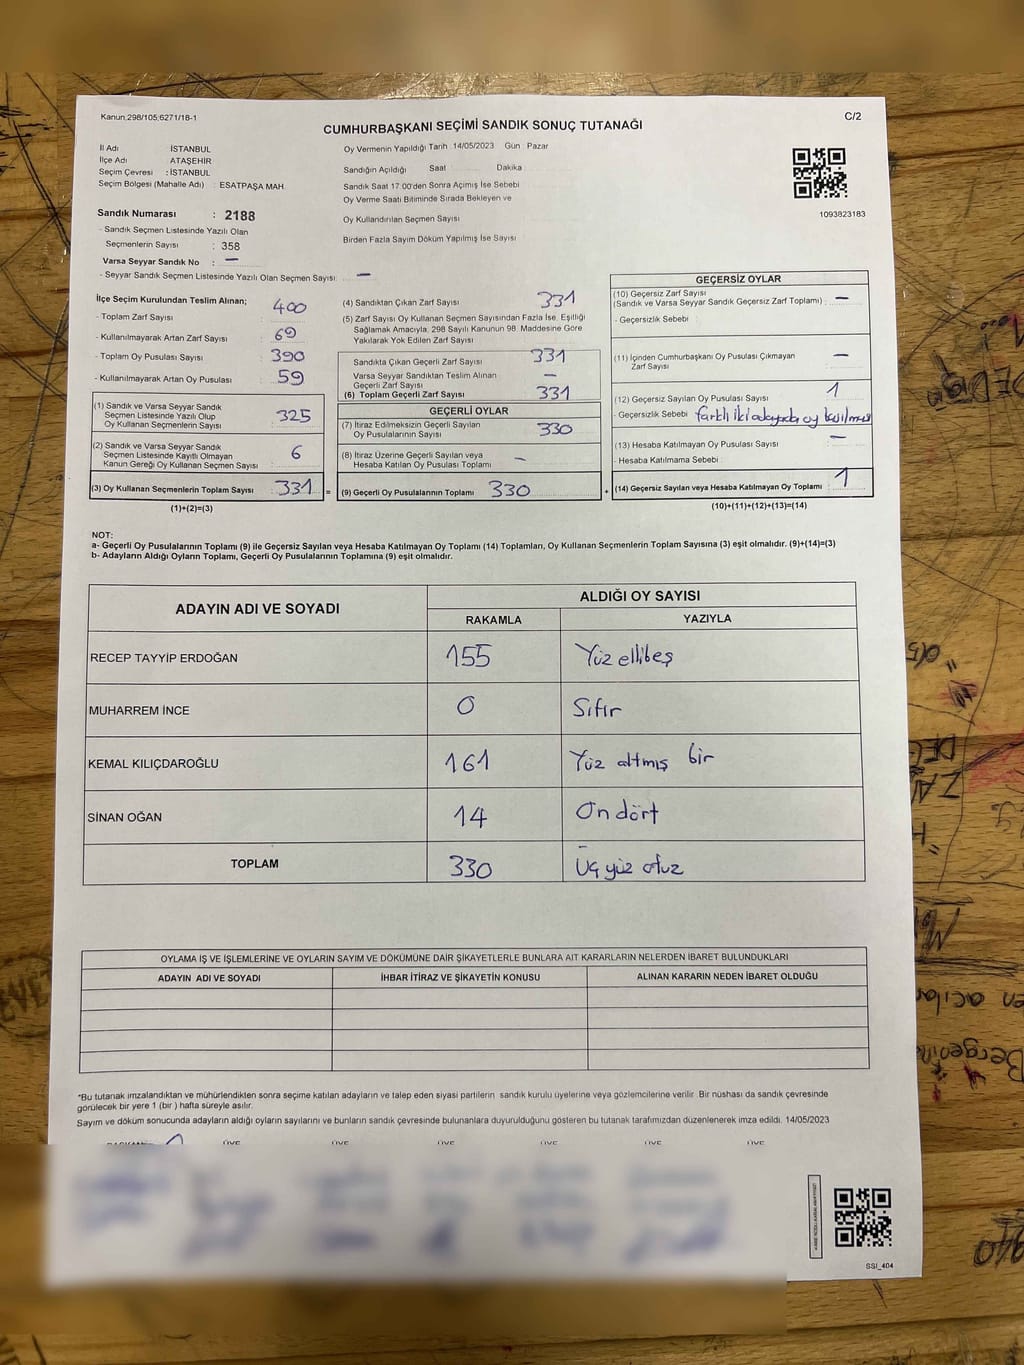 Kanun.298/105;6271/18-1
C/2
CUMHURBAŞKANI SEÇİMİ SANDIK SONUÇ TUTANAĞI
İl Adı İSTANBUL
İlçe Adı ATAŞEHİR
Seçim Çevresi : İSTANBUL
Seçim Bölgesi (Mahalle Adı) : ESATPAŞA MAH.
Oy Vermenin Yapıldığı Tarih 14/05/2023 Gün Pazar
Sandığın Açıldığı Saat Dakika
Sandık Saat 17:00'den Sonra Açımış İse Sebebi
Oy Verme Saati Bitiminde Sırada Bekleyen ve
Oy Kullandırılan Seçmen Sayısı
Birden Fazla Sayım Döküm Yapılmış İse Sayısı
1093823183
Sandık Numarası : 2188
- Sandık Seçmen Listesinde Yazılı Olan
Seçmenlerin Sayısı : 358
Varsa Seyyar Sandık No : —
- Seyyar Sandık Seçmen Listesinde Yazılı Olan Seçmen Sayısı: —
İlçe Seçim Kurulundan Teslim Alınan;
- Toplam Zarf Sayısı : 400
- Kullanılmayarak Artan Zarf Sayısı : 69
- Toplam Oy Pusulası Sayısı : 390
- Kullanılmayarak Artan Oy Pusulası : 59
(1) Sandık ve Varsa Seyyar Sandık
Seçmen Listesinde Yazılı Olup
Oy Kullanan Seçmenlerin Sayısı 325
(2) Sandık ve Varsa Seyyar Sandık
Seçmen Listesinde Kayıtlı Olmayan
Kanun Gereği Oy Kullanan Seçmen Sayısı 6
(3) Oy Kullanan Seçmenlerin Toplam Sayısı 331 =
(1)+(2)=(3)
(4) Sandıktan Çıkan Zarf Sayısı 331
(5) Zarf Sayısı Oy Kullanan Seçmen Sayısından Fazla İse, Eşitliği
Sağlamak Amacıyla, 298 Sayılı Kanunun 98. Maddesine Göre
Yakılarak Yok Edilen Zarf Sayısı
Sandıkta Çıkan Geçerli Zarf Sayısı 331
Varsa Seyyar Sandıktan Teslim Alınan
Geçerli Zarf Sayısı —
(6) Toplam Geçerli Zarf Sayısı 331
GEÇERLİ OYLAR
(7) İtiraz Edilmeksizin Geçerli Sayılan
Oy Pusulalarının Sayısı 330
(8) İtiraz Üzerine Geçerli Sayılan veya
Hesaba Katılan Oy Pusulası Toplamı —
(9) Geçerli Oy Pusulalarının Toplamı 330 +
GEÇERSİZ OYLAR
(10) Geçersiz Zarf Sayısı
(Sandık ve Varsa Seyyar Sandık Geçersiz Zarf Toplamı) : —
- Geçersizlik Sebebi :
(11) İçinden Cumhurbaşkanı Oy Pusulası Çıkmayan
Zarf Sayısı —
(12) Geçersiz Sayılan Oy Pusulası Sayısı 1
- Geçersizlik Sebebi farklı iki adayada oy basılmış
(13) Hesaba Katılmayan Oy Pusulası Sayısı —
- Hesaba Katılmama Sebebi :
(14) Geçersiz Sayılan veya Hesaba Katılmayan Oy Toplamı : 1
(10)+(11)+(12)+(13)=(14)
NOT:
a- Geçerli Oy Pusulalarının Toplamı (9) ile Geçersiz Sayılan veya Hesaba Katılmayan Oy Toplamı (14) Toplamları, Oy Kullanan Seçmenlerin Toplam Sayısına (3) eşit olmalıdır. (9)+(14)=(3)
b- Adayların Aldığı Oyların Toplamı, Geçerli Oy Pusulalarının Toplamına (9) eşit olmalıdır.
ADAYIN ADI VE SOYADI ALDIĞI OY SAYISI
RAKAMLA YAZIYLA
RECEP TAYYİP ERDOĞAN 155 Yüz ellibeş
MUHARREM İNCE 0 Sıfır
KEMAL KILIÇDAROĞLU 161 Yüz altmış bir
SİNAN OĞAN 14 On dört
TOPLAM 330 Üç yüz otuz
OYLAMA İŞ VE İŞLEMLERİNE VE OYLARIN SAYIM VE DÖKÜMÜNE DAİR ŞİKAYETLERLE BUNLARA AİT KARARLARIN NELERDEN İBARET BULUNDUKLARI
ADAYIN ADI VE SOYADI İHBAR İTİRAZ VE ŞİKAYETİN KONUSU ALINAN KARARIN NEDEN İBARET OLDUĞU
*Bu tutanak imzalandıktan ve mühürlendikten sonra seçime katılan adayların ve talep eden siyasi partilerin sandık kurulu üyelerine veya gözlemcilerine verilir. Bir nüshası da sandık çevresinde
görülecek bir yere 1 (bir) hafta süreyle asılır.
Sayım ve döküm sonucunda adayların aldığı oyların sayılarını ve bunların sandık çevresinde bulunanlara duyurulduğunu gösteren bu tutanak tarafımızdan düzenlenerek imza edildi. 14/05/2023
ÜYE ÜYE ÜYE ÜYE ÜYE ÜYE
SSİ_404